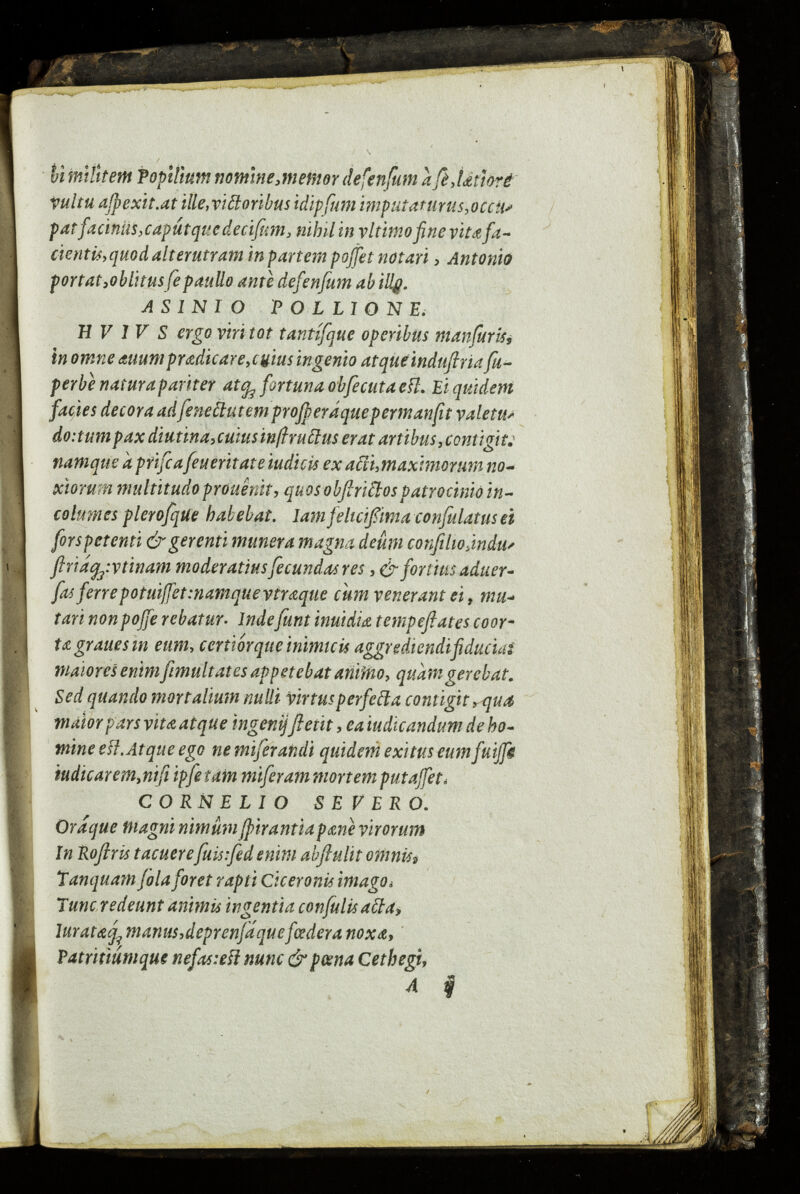 bi militem Popilium nomine,memor defenſum à ſe,lætiore
vultu aſpexit.at ille,victoribus idipſum imputaturus,occu-
pat facinus,caputque deciſum, nihil in vltimo fine vitæ fa-
cientis,quod alterutram in partem poſſet notari, Antonio
portat,oblitus ſe paullo antè defenſum ab illo.
ASINIO POLLIONE.
HVIVS ergo viri tot tantiſque operibus manſuris,
in omne æuum prædicare,cuius ingenio atque induſtria ſu-
perbè natura pariter atq; fortuna obſecuta eſt. Ei quidem
facies decora ad ſenectutem proſperáque permanſit valetu-
do:tum pax diutina,cuius inſtructus erat artibus,contigit:
namque à priſca ſeueritate iudicis ex acti,maximorum no-
xiorum multitudo prouênit, quos obſtrictos patrocinio in-
columes pleroſque habebat. Iam felicißima conſulatus ei
ſors petenti & gerenti munera magna deûm conſilio,indu-
ſtriáq;:vtinam moderatius ſecundas res, & fortius aduer-
ſas ferre potuiſſet:namque vtræque cùm venerant ei, mu-
tari non poſſe rebatur. Inde ſunt inuidiæ tempeſtates coor-
tæ graues in eum, certiórque inimicis aggrediendi fiducia:
maiores enim ſimultates appetebat animo, quàm gerebat.
Sed quando mortalium nulli virtus perfecta contigit, qua
maior pars vitæ atque ingenij ſtetit, ea iudicandum de ho-
mine eſt.Atque ego ne miſerandi quidem exitus eum fuiſſe
iudicarem,niſi ipſe tam miſeram mortem putaſſet.
CORNELIO SEVERO.
Oráque magni nimûm ſpirantia pæne virorum
In Roſtris tacuere ſuis:ſed enim abſtulit omnis,
Tanquam ſola foret rapti Ciceronis imago.
Tunc redeunt animis ingentia conſulis acta,
Iuratæq; manus,deprenſáque fœdera noxæ,
Patritiûmque nefas:eſt nunc & pœna Cethegi,
A ij